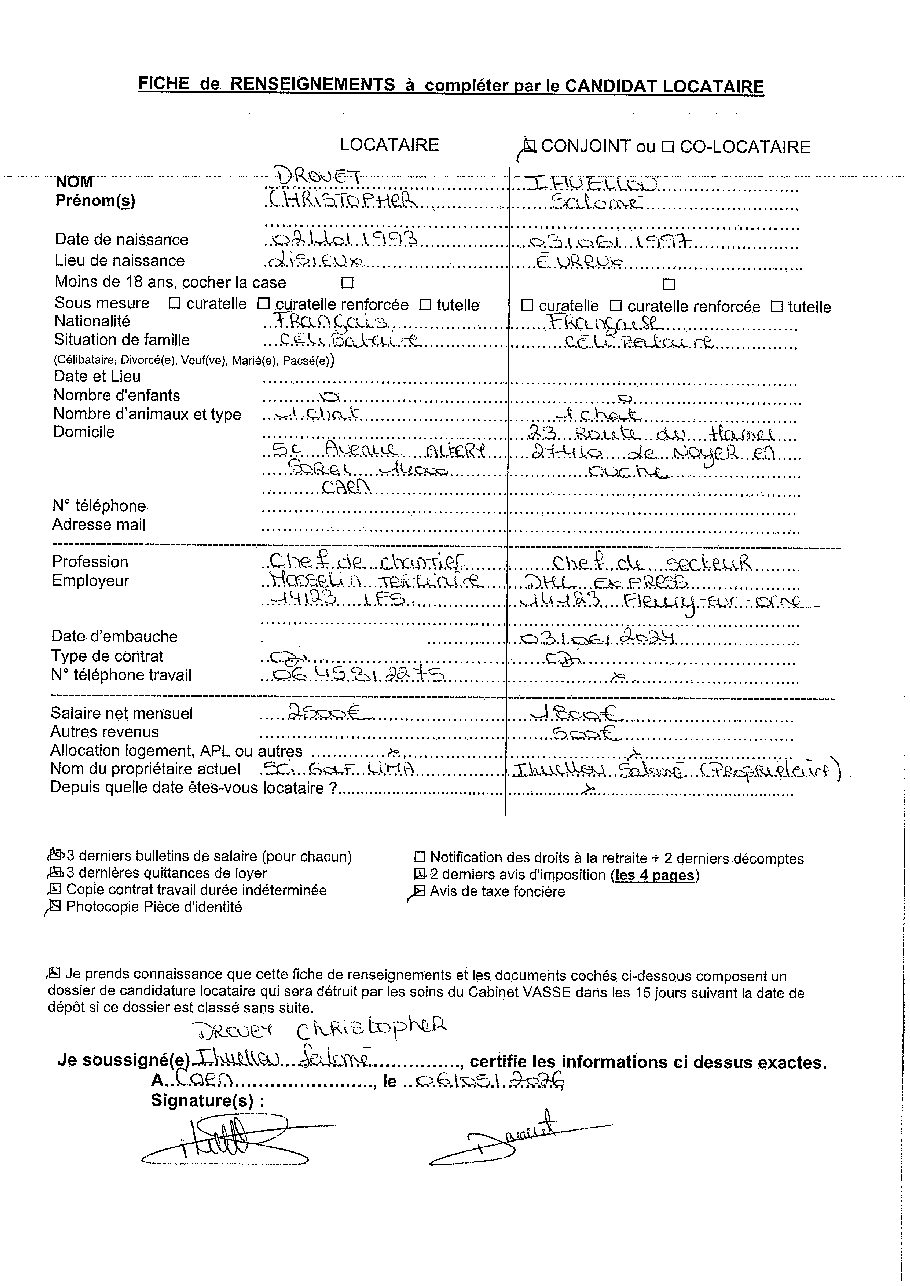 FICHE de RENSEIGNEMENTS à compléter par le CANDIDAT LOCATAIRE
LOCATAIRE ☒ CONJOINT ou ☐ CO-LOCATAIRE
NOM DROUET IHUELLOU
Prénom(s) CHRISTOPHER Salomé
Date de naissance 1993 03/06/1997
Lieu de naissance LISIEUX EVREUX
Moins de 18 ans, cocher la case ☐ ☐
Sous mesure ☐ curatelle ☐ curatelle renforcée ☐ tutelle ☐ curatelle ☐ curatelle renforcée ☐ tutelle
Nationalité Français Française
Situation de famille Célibataire Célibataire
(Célibataire, Divorcé(e), Veuf(ve), Marié(e), Pacsé(e))
Date et Lieu
Nombre d'enfants 0 0
Nombre d'animaux et type 1 chat 1 chat
Domicile 23 Route du Hamel
Avenue ALBERT 27410 de NOYER en
SOREL OUCHE
CAEN
N° téléphone
Adresse mail
Profession Chef de chantier Chef de secteur
Employeur TERTIAIRE DHL EXPRESS
14123 IFS 14123 Fleury-sur-orne
Date d'embauche 03/06/2024
Type de contrat CDI CDI
N° téléphone travail 06 45 81 22 75 x
Salaire net mensuel 2500€ 1800€
Autres revenus 500€
Allocation logement, APL ou autres x x
Nom du propriétaire actuel SCI GOLF LIMA Ihuellou Salomé (Propriétaire)
Depuis quelle date êtes-vous locataire ? x
☒ 3 derniers bulletins de salaire (pour chacun) ☐ Notification des droits à la retraite + 2 derniers décomptes
☒ 3 dernières quittances de loyer ☒ 2 derniers avis d'imposition (les 4 pages)
☒ Copie contrat travail durée indéterminée ☒ Avis de taxe foncière
☒ Photocopie Pièce d'identité
☒ Je prends connaissance que cette fiche de renseignements et les documents cochés ci-dessous composent un
dossier de candidature locataire qui sera détruit par les soins du Cabinet VASSE dans les 15 jours suivant la date de
dépôt si ce dossier est classé sans suite.
DROUET Christopher
Je soussigné(e) Ihuellou Salomé, certifie les informations ci dessus exactes.
A Caen, le 06/05/2026
Signature(s) :
Drouet